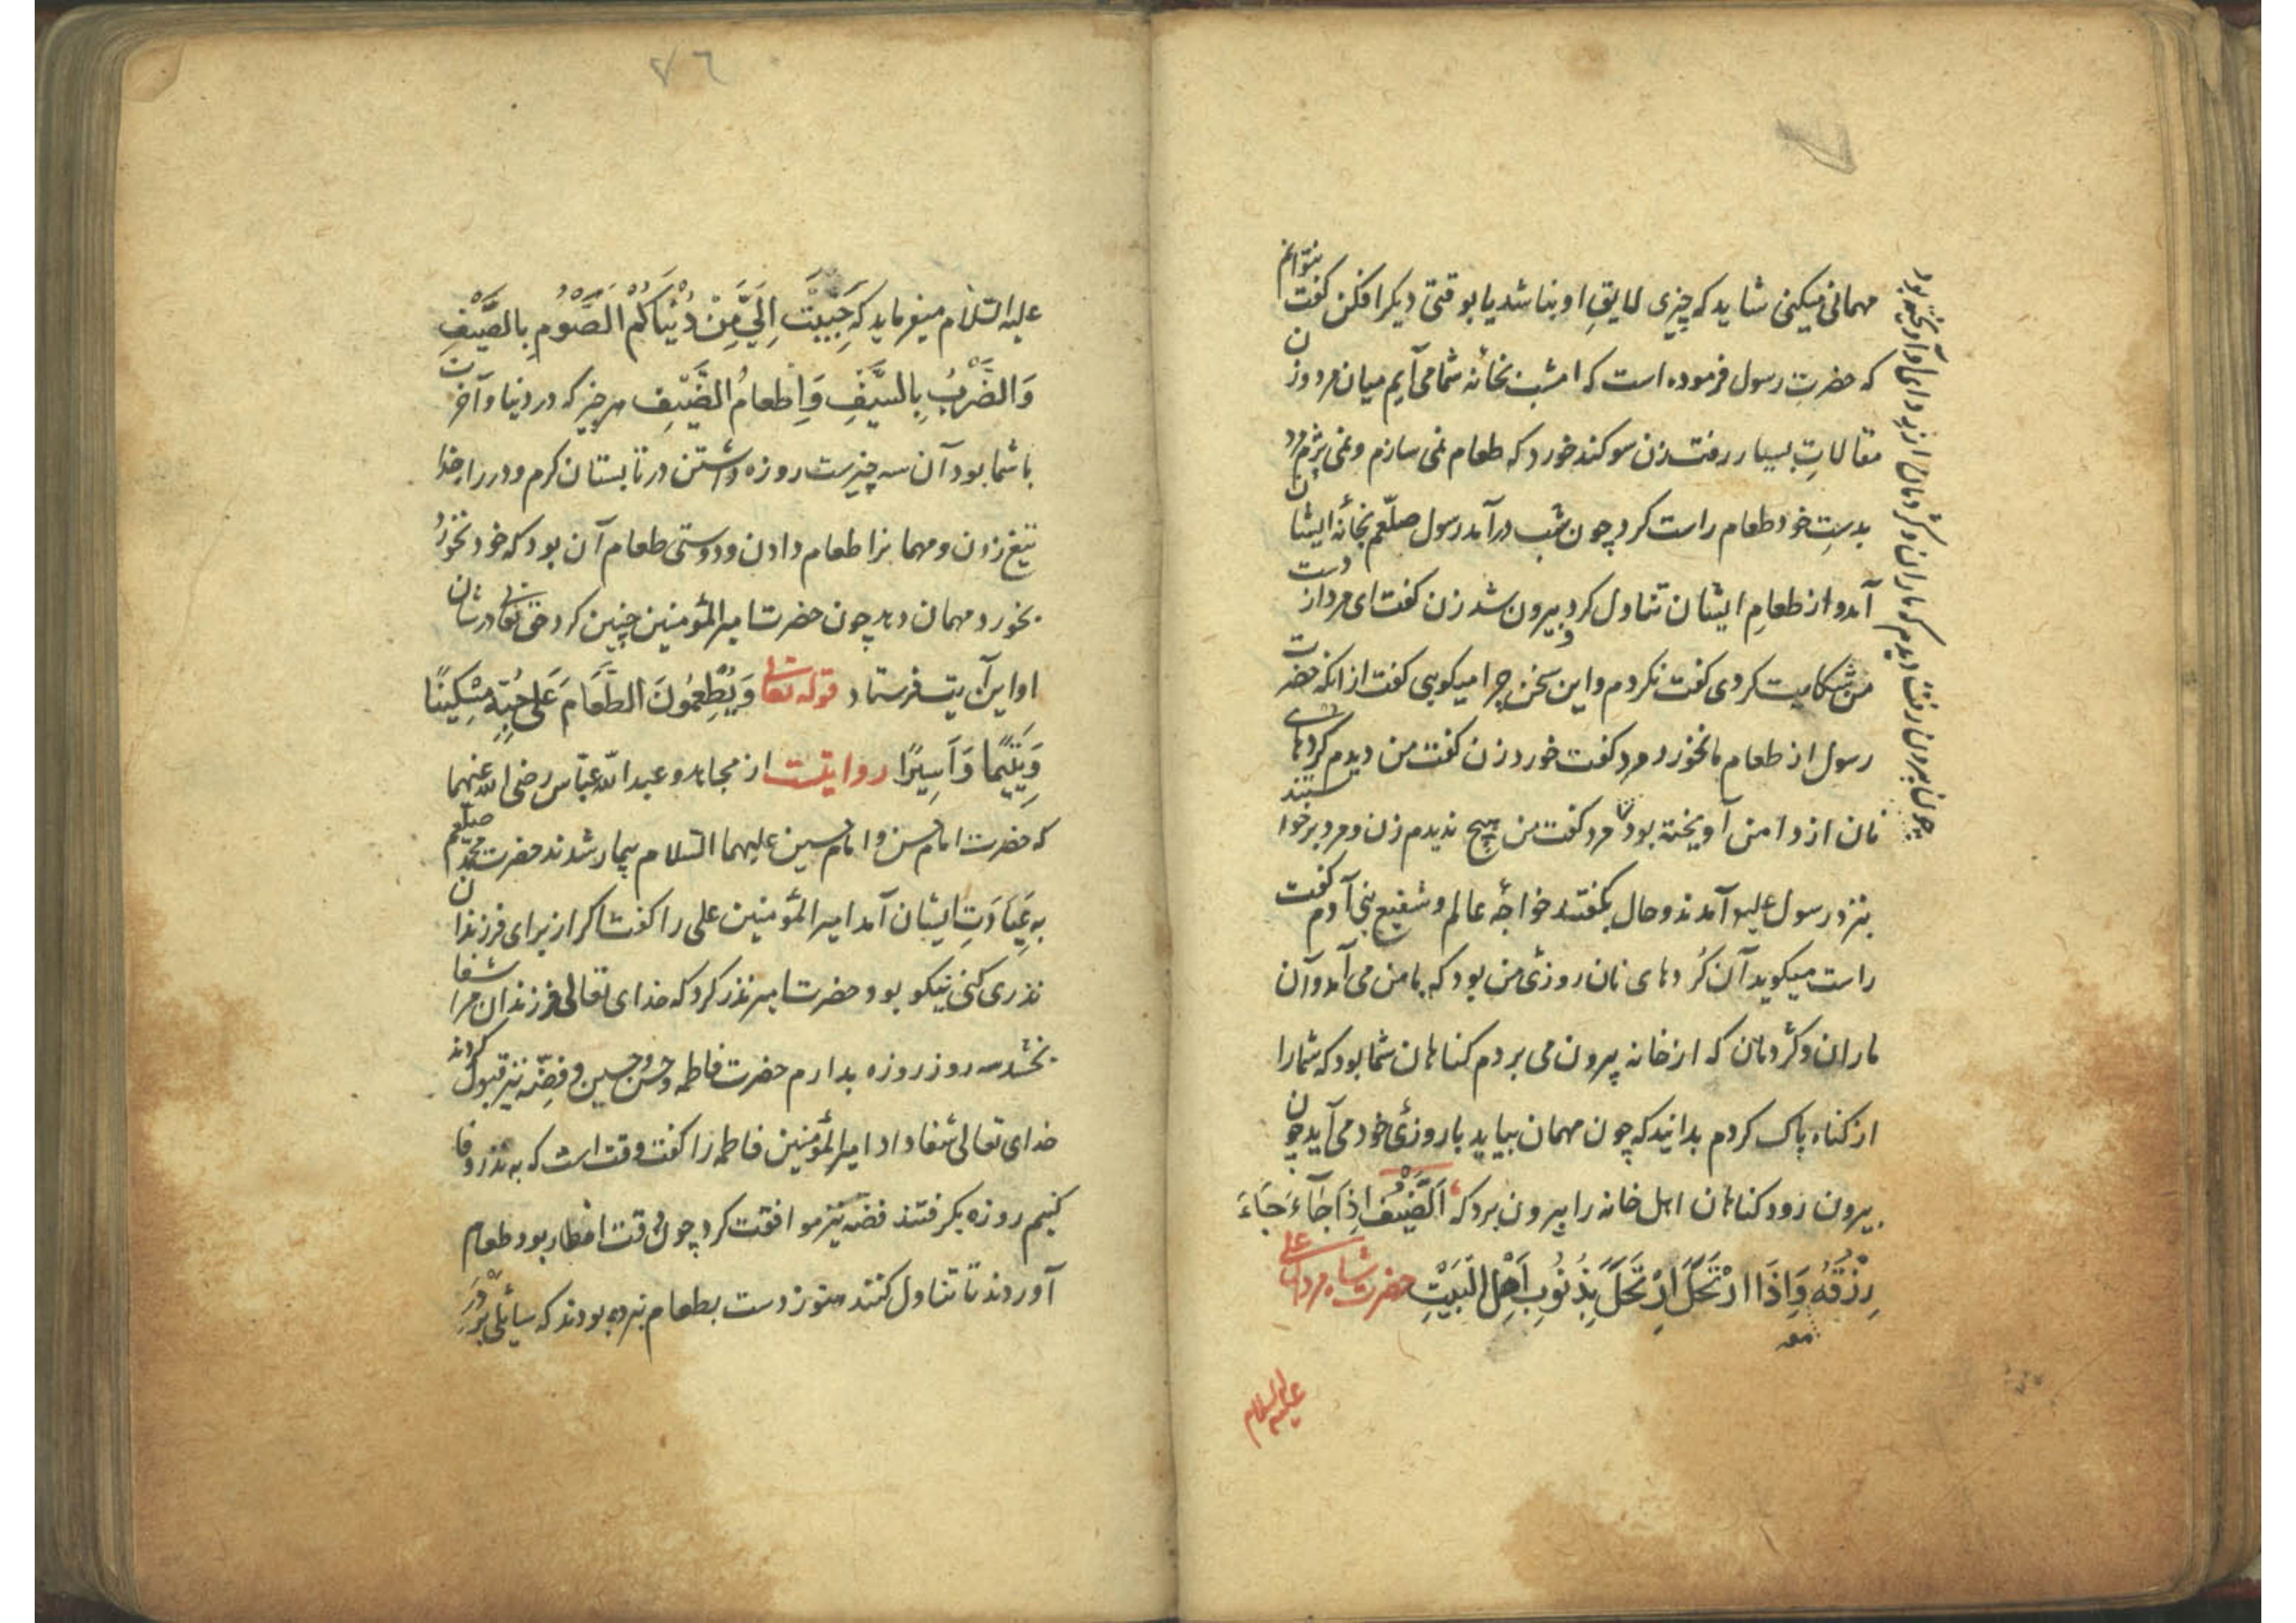 مهمانی میکنی شاید که چیزی لایقِ او نباشد یا بوقتی دیگر افکن گفت نتوانم
که حضرتِ رسول فرموده است که امشب بخانه شما می آیم میان مرد و زن
مقالاتِ بسیار رفت زن سوکند خورد که طعام نمی سازم و نمی پزم مرد
بدستِ خود طعام راست کرد چون شب درآمد رسول صلّعم بخانهٔ ایشان
آمد و از طعامِ ایشان تناول کرد و بیرون شد زن گفت ای مرد از دست
من شکایت کردی گفت نکردم و این سخن چرا میکویی گفت از انکه حضرت
رسول از طعام ما نخورد مرد گفت خورد زن گفت من دیدم کردهای
نان از دامن آویخته بود مرد گفت من هیچ ندیدم زن و مرد برخواستند
بنزد رسول علیه آمدند و حال بگفتند خواجهٔ عالم و شفیع بنی آدم گفت
راست میکوید آن کُردهای نان روزئ من بود که با من می آمد و آن
ماران و کژدمان که از خانه بیرون می بردم کناهان شما بود که شما را
از کناه پاک کردم بدانید که چون مهمان بیاید با روزئ خود می آید چون
بیرون رود کناهان اهل خانه را بیرون برد که اَلضَّیْفُ اِذَا جَآءَ جَاءَ
رِزْقُهُ وَاِذَا ارْتَحَلَ اِرْتَحَلَ بِذُنُوبِ اَهْلِ الْبَیْتِ حضرت شاه مردان علی
معه
علیه السلام
چون بیرون رفت دیدم که ماران و کژدمان از دامن او آویخته بود
٧٦
علیه السّلام میفرماید که حَبِیبَتْ اِلَیَّ مِنْ دُنْیَاکُمْ الصَّوْمُ بِالصَّیْفِ
وَالضَّرْبُ بِالسَّیْفِ وَاِطْعامُ الضَّیْفِ هر چیز که در دنیا و آخرت
با شما بود آن سه چیزست روزه داشتن در تابستان کرم و در راه خدا
تیغ زدن و مهمانرا طعام دادن و دوستی طعام آن بود که خود نخورد
بخورد مهمان دهد چون حضرت امیرالمؤمنین چنین کرد حق تعالی در شان
او این آیت فرستاد قوله تعالی وَیُطْعِمُونَ الطَّعَامَ عَلَی حُبِّهِ مِسْکِینًا
وَیَتِیْمًا وَاَسِیرًا روایتست از مجاهد و عبدالله عبّاس رضی الله عنهما
که حضرت امام حسن و امام حسین علیهما السّلام بیمار شدند حضرت محمّد صلّعم
به عِیَادَتِ ایشان آمد امیرالمؤمنین علی را گفت اکر از برای فرزندان
نذری کنی نیکو بود حضرت امیر نذر کرد که خدای تعالی فرزندان مرا شفا
بخشد سه روز روزه بدارم حضرت فاطمه و حسن و حسین و فضّه نیز قبول کردند
خدای تعالی شفا داد امیرالمؤمنین فاطمه را گفت وقت است که به نذر وفا
کنیم روزه بکرفتند فضّه نیز موافقت کرد چون وقت افطار بود طعام
آوردند تا تناول کنند هنوز دست بطعام نبرده بودند که سائلی بر در